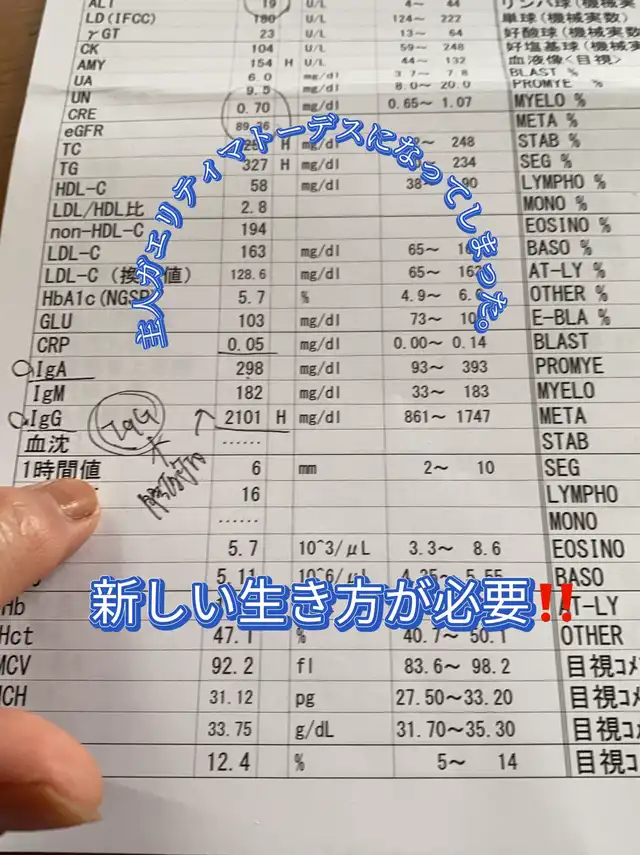 ALT 19 U/L 4~ 44 リンパ球(機械実
LD(IFCC) 180 U/L 124~ 222 単球(機械実数)
γGT 23 U/L 13~ 64 好酸球(機械実数
CK 104 U/L 59~ 248 好塩基球(機械実
AMY 154 H U/L 44~ 132 血液像<目視>
UA 6.0 mg/dl 3.7~ 7.8 BLAST %
UN 9.5 mg/dl 8.0~ 20.0 PROMYE %
CRE 0.70 mg/dl 0.65~ 1.07 MYELO %
eGFR META %
TC H mg/dl 248 STAB %
TG 327 H mg/dl 234 SEG %
HDL-C 58 mg/dl LYMPHO %
LDL/HDL比 2.8 MONO %
non-HDL-C 194 EOSINO %
LDL-C 163 mg/dl 65~ BASO %
LDL-C (換 値) 128.6 mg/dl 65~ AT-LY %
HbA1c(NGSP) 5.7 % 4.9~ OTHER %
GLU 103 mg/dl 73~ E-BLA %
CRP 0.05 mg/dl 0.00~ 0.14 BLAST
IgA 298 mg/dl 93~ 393 PROMYE
IgM 182 mg/dl 33~ 183 MYELO
IgG 2101 H mg/dl 861~ 1747 META
IgG
血沈 ······ STAB
1時間値 6 mm 2~ 10 SEG
16 LYMPHO
······ MONO
5.7 10^3/μL 3.3~ 8.6 EOSINO
5.11 10^6/μL 4.35~ 5.55 BASO
Hb AT-LY
Hct 47.1 % 40.7~ 50.1 OTHER
MCV 92.2 fl 83.6~ 98.2 目視コメ
MCH 31.12 pg 27.50~33.20 目視コメ
33.75 g/dL 31.70~35.30 目視コメ
12.4 % 5~ 14 目視コメ
主人がエリティマトーデスになってしまった。
新しい生き方が必要‼️